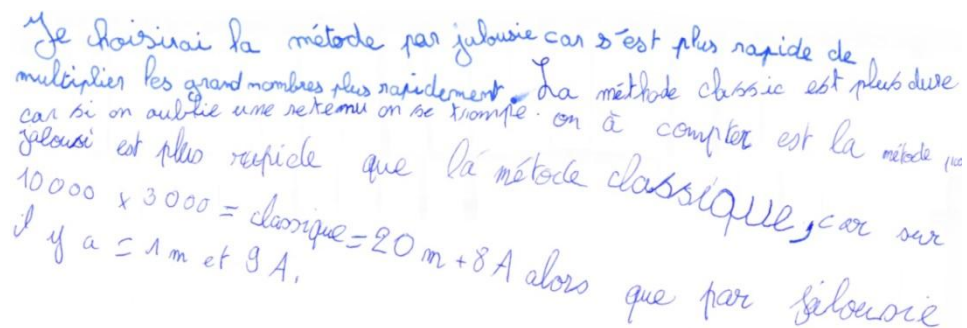 Je choisirai la métode par jalousie car s'est plus rapide de
multiplier les grand nombres plus rapidement. La méthode classic est plus dure
car si on oublie une retenu on se trompe. on à compter est la métode par
jalousi est plus rapide que la métode classique, car sur
10000 x 3000 = classique = 20 m + 8 A alors que par jalousie
il y a = 1 m et 9 A.